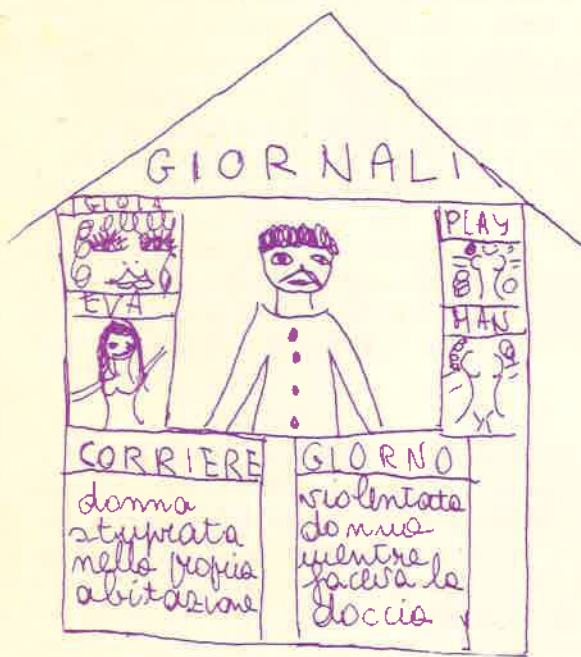 GIORNALI
GIOIA
EVA
PLAY
MAN
CORRIERE
donna
stuprata
nella propria
abitazione
GIORNO
violentata
donna
mentre
faceva la
doccia